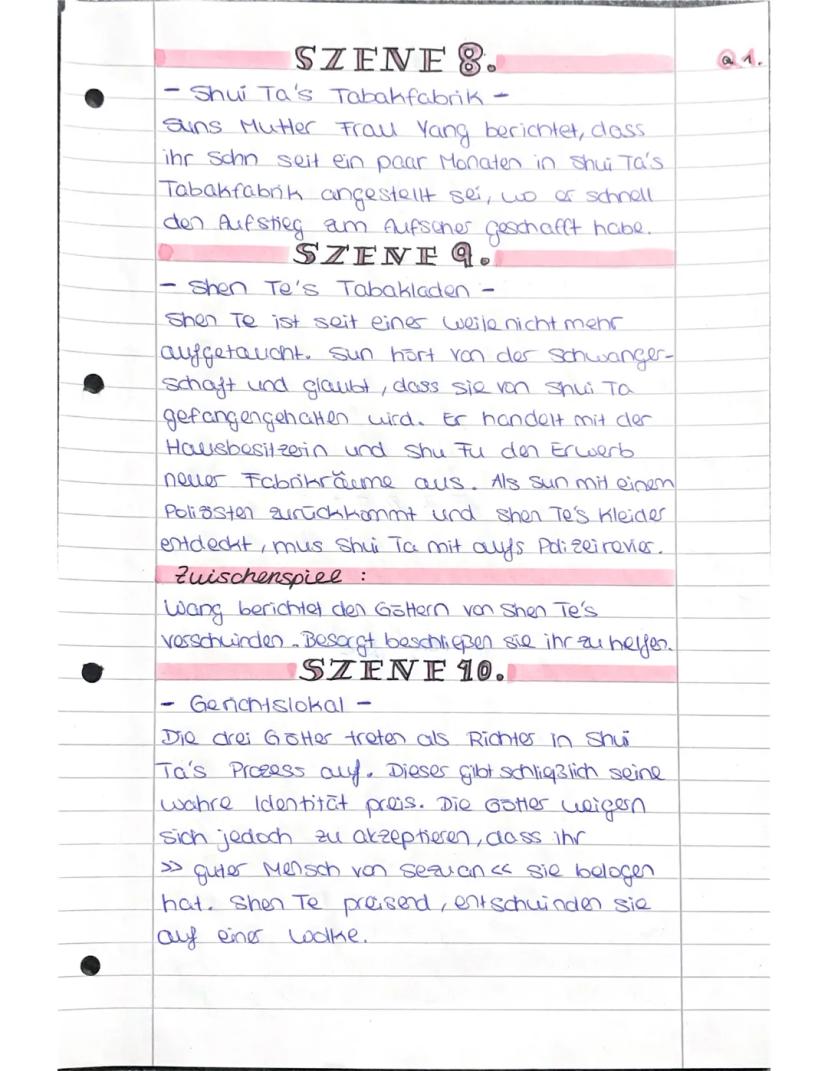 SZENE 8.
Q1.
- Shui Ta's Tabakfabrik -
Suns Mutter Frau Yang berichtet, dass
ihr Sohn seit ein paar Monaten in Shui Ta's
Tabakfabrik angestellt sei, wo er schnell
den Aufstieg zum Aufseher geschafft habe.
SZENE 9.
- Shen Te's Tabakladen -
Shen Te ist seit einer Weile nicht mehr
aufgetaucht. Sun hört von der Schwanger-
schaft und glaubt, dass sie von Shui Ta
gefangengehalten wird. Er handelt mit der
Hausbesitzerin und Shu Fu den Erwerb
neuer Fabrikräume aus. Als Sun mit einem
Polizisten zurückkommt und Shen Te's Kleider
entdeckt, mus Shui Ta mit aufs Polizeirevier.
Zwischenspiel :
Wang berichtet den Göttern von Shen Te's
verschwinden. Besorgt beschließen sie ihr zu helfen.
SZENE 10.
- Gerichtslokal -
Die drei Götter treten als Richter in Shui
Ta's Prozess auf. Dieser gibt schließlich seine
wahre Identität preis. Die Götter weigern
sich jedoch zu akzeptieren, dass ihr
>> guter Mensch von Sezuan << sie belogen
hat. Shen Te preisend, entschwinden sie
auf einer Wolke.